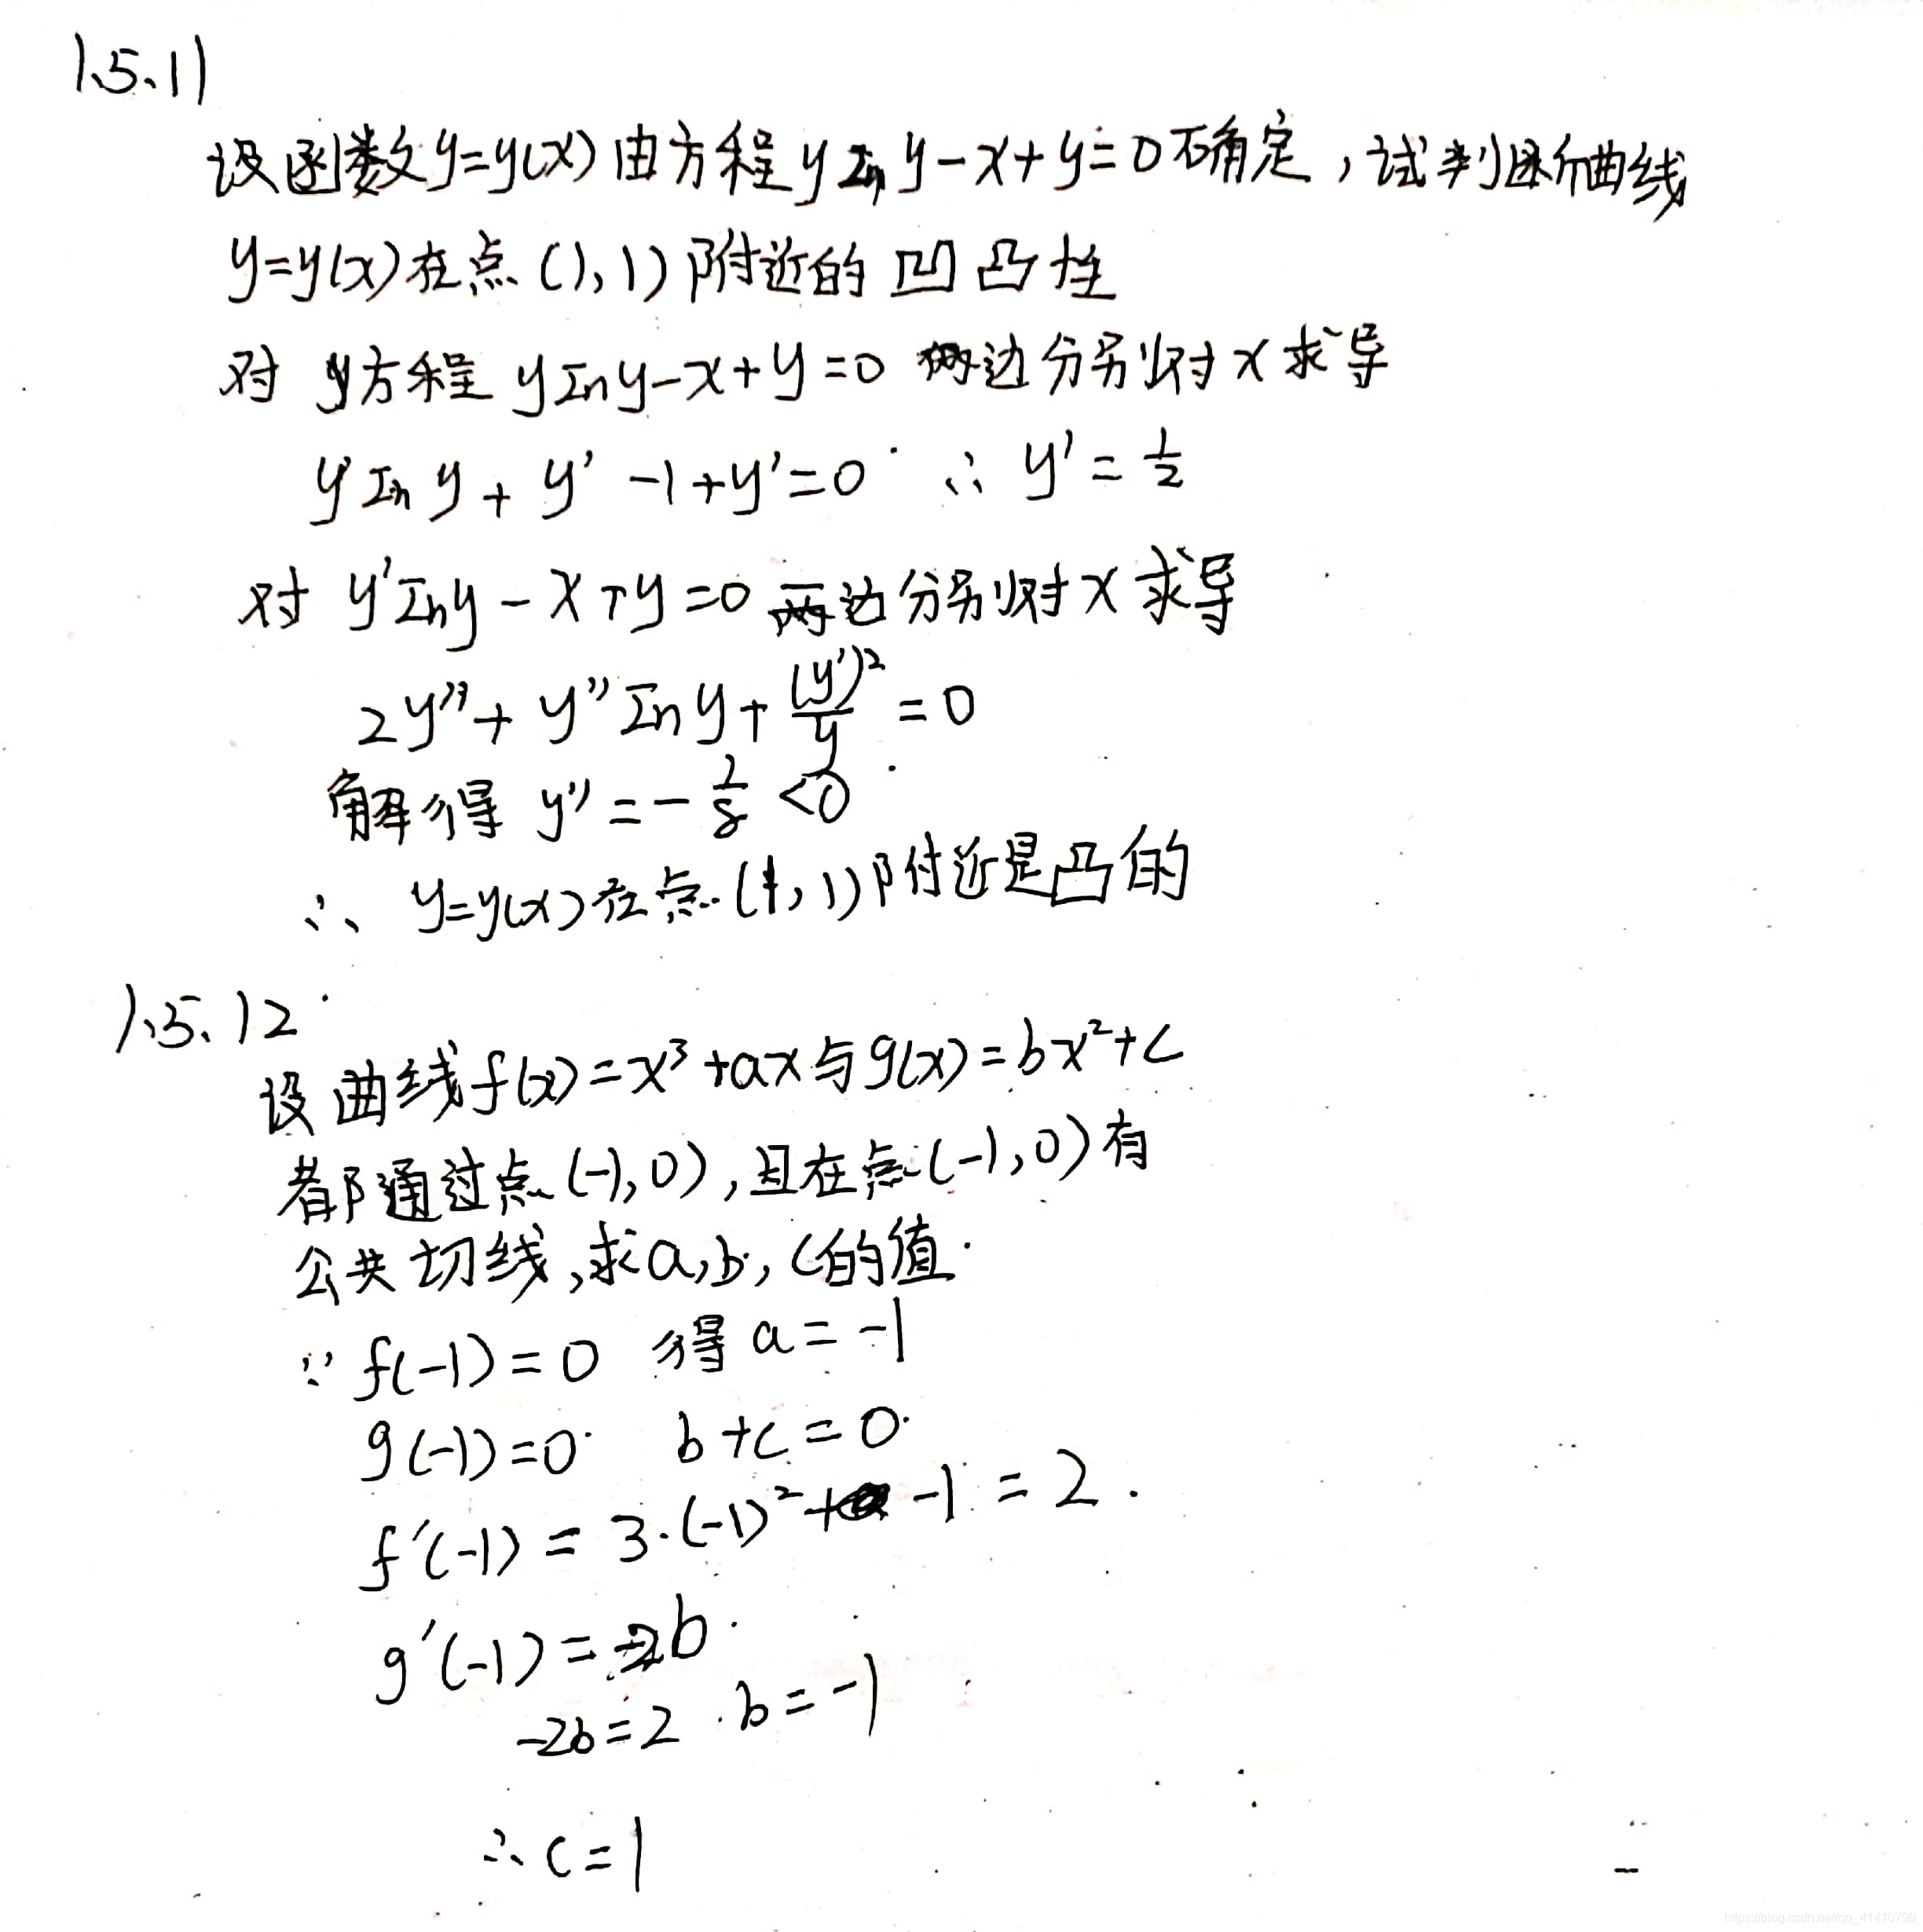 1.5.11
设函数y=y(x)由方程ylny-x+y=0确定,试判断曲线
y=y(x)在点(1,1)附近的凹凸性
对 方程 ylny-x+y=0 两边分别对x求导
y'lny+y'-1+y'=0 ∴ y'=1/2
对 y'lny-x+y=0 两边分别对x求导
2y''+y''lny+(y')²/y=0
解得 y''=-1/8<0
∴ y=y(x)在点(1,1)附近是凸的
1.5.12
设曲线f(x)=x³+ax与g(x)=bx²+c
都通过点(-1,0),且在点(-1,0)有
公共切线,求a,b,c的值.
∵ f(-1)=0 得 a=-1
g(-1)=0 b+c=0
f'(-1)=3·(-1)²-1=2.
g'(-1)=-2b.
-2b=2 . b=-1
∴ c=1
https://blog.csdn.net/qq_41410799